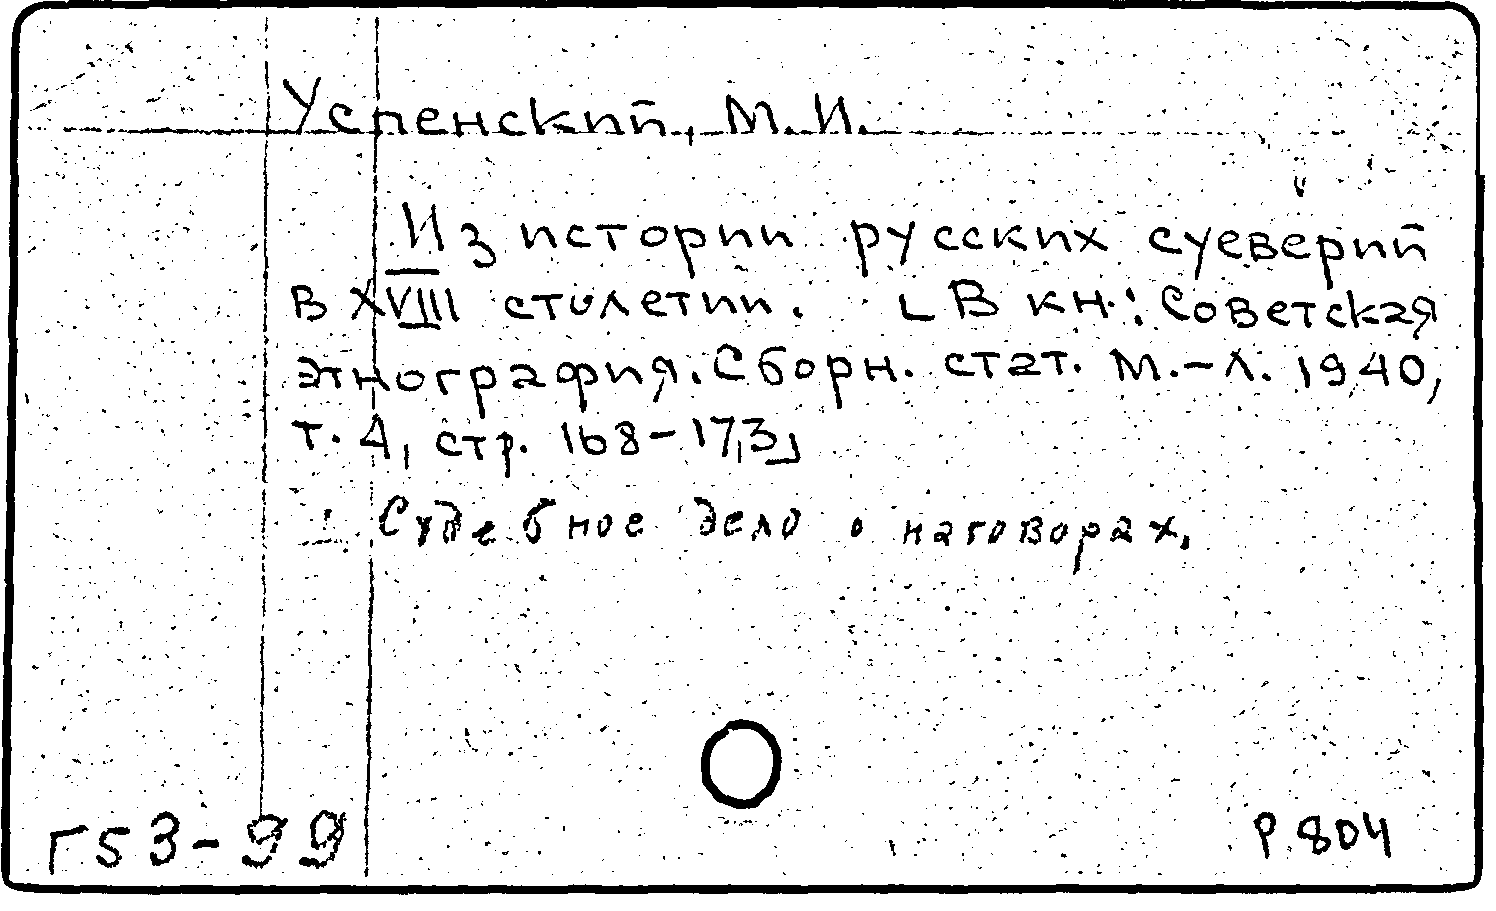 Успенский, М. И.
Из истории русских суеверий
в XVIII столетии. [В кн.: Советская
этнография. Сборн. стат. М.-Л. 1940,
т. 4, стр. 168-173]
Судебное дело о наговорах.
Г53-99
Р 804